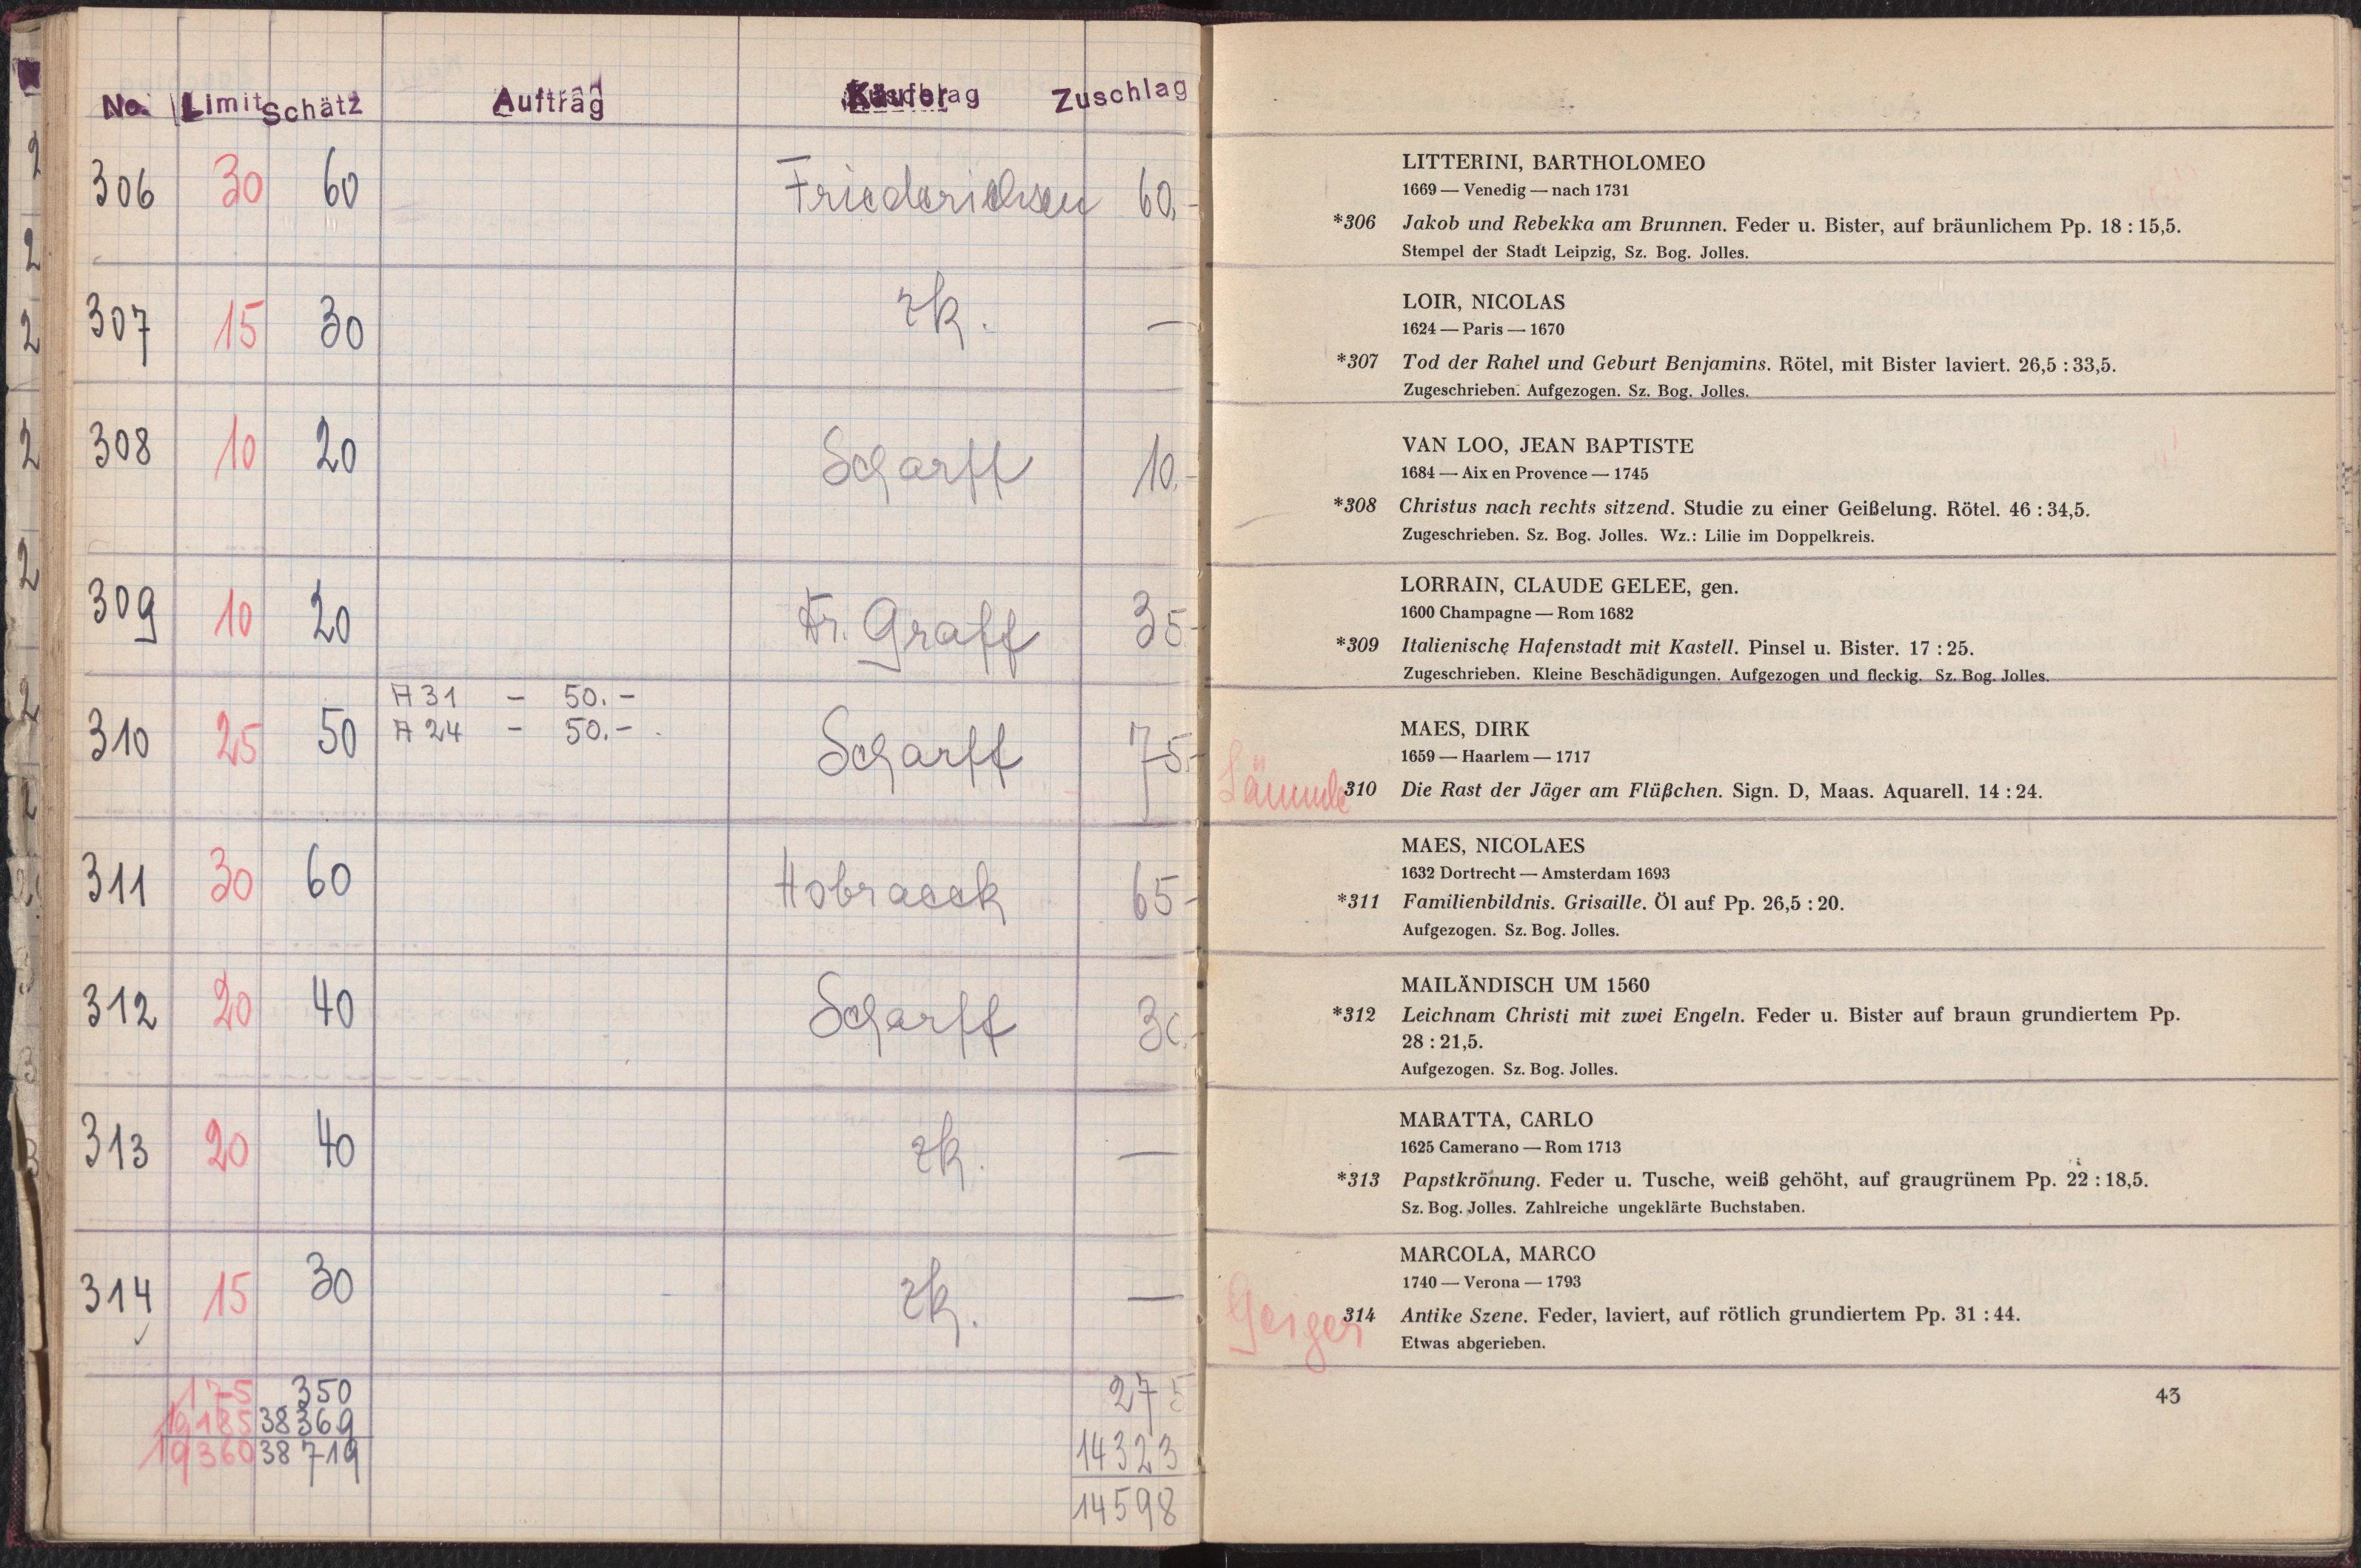 No. Limit Schätz Auftrag Käufer Zuschlag
306 30 60 Friederichsen 60.-
307 15 30 zk. —
308 10 20 Scharff 10.-
309 10 20 Fr. Graff 35.-
A 31 - 50.-
310 25 50 A 24 - 50.- Scharff 75.-
311 30 60 Hobraeck 65.-
312 20 40 Scharff 30.-
313 20 40 zk. —
314 15 30 zk. —
175 350 275
19185 38369 14323
19360 38719 14598
LITTERINI, BARTHOLOMEO
1669 — Venedig — nach 1731
*306 Jakob und Rebekka am Brunnen. Feder u. Bister, auf bräunlichem Pp. 18 : 15,5.
Stempel der Stadt Leipzig, Sz. Bog. Jolles.
LOIR, NICOLAS
1624 — Paris — 1670
*307 Tod der Rahel und Geburt Benjamins. Rötel, mit Bister laviert. 26,5 : 33,5.
Zugeschrieben. Aufgezogen. Sz. Bog. Jolles.
VAN LOO, JEAN BAPTISTE
1684 — Aix en Provence — 1745
*308 Christus nach rechts sitzend. Studie zu einer Geißelung. Rötel. 46 : 34,5.
Zugeschrieben. Sz. Bog. Jolles. Wz.: Lilie im Doppelkreis.
LORRAIN, CLAUDE GELEE, gen.
1600 Champagne — Rom 1682
*309 Italienische Hafenstadt mit Kastell. Pinsel u. Bister. 17 : 25.
Zugeschrieben. Kleine Beschädigungen. Aufgezogen und fleckig. Sz. Bog. Jolles.
MAES, DIRK
1659 — Haarlem — 1717
310 Die Rast der Jäger am Flüßchen. Sign. D, Maas. Aquarell. 14 : 24.
MAES, NICOLAES
1632 Dortrecht — Amsterdam 1693
*311 Familienbildnis. Grisaille. Öl auf Pp. 26,5 : 20.
Aufgezogen. Sz. Bog. Jolles.
MAILÄNDISCH UM 1560
*312 Leichnam Christi mit zwei Engeln. Feder u. Bister auf braun grundiertem Pp.
28 : 21,5.
Aufgezogen. Sz. Bog. Jolles.
MARATTA, CARLO
1625 Camerano — Rom 1713
*313 Papstkrönung. Feder u. Tusche, weiß gehöht, auf graugrünem Pp. 22 : 18,5.
Sz. Bog. Jolles. Zahlreiche ungeklärte Buchstaben.
MARCOLA, MARCO
1740 — Verona — 1793
Geiger 314 Antike Szene. Feder, laviert, auf rötlich grundiertem Pp. 31 : 44.
Etwas abgerieben.
43